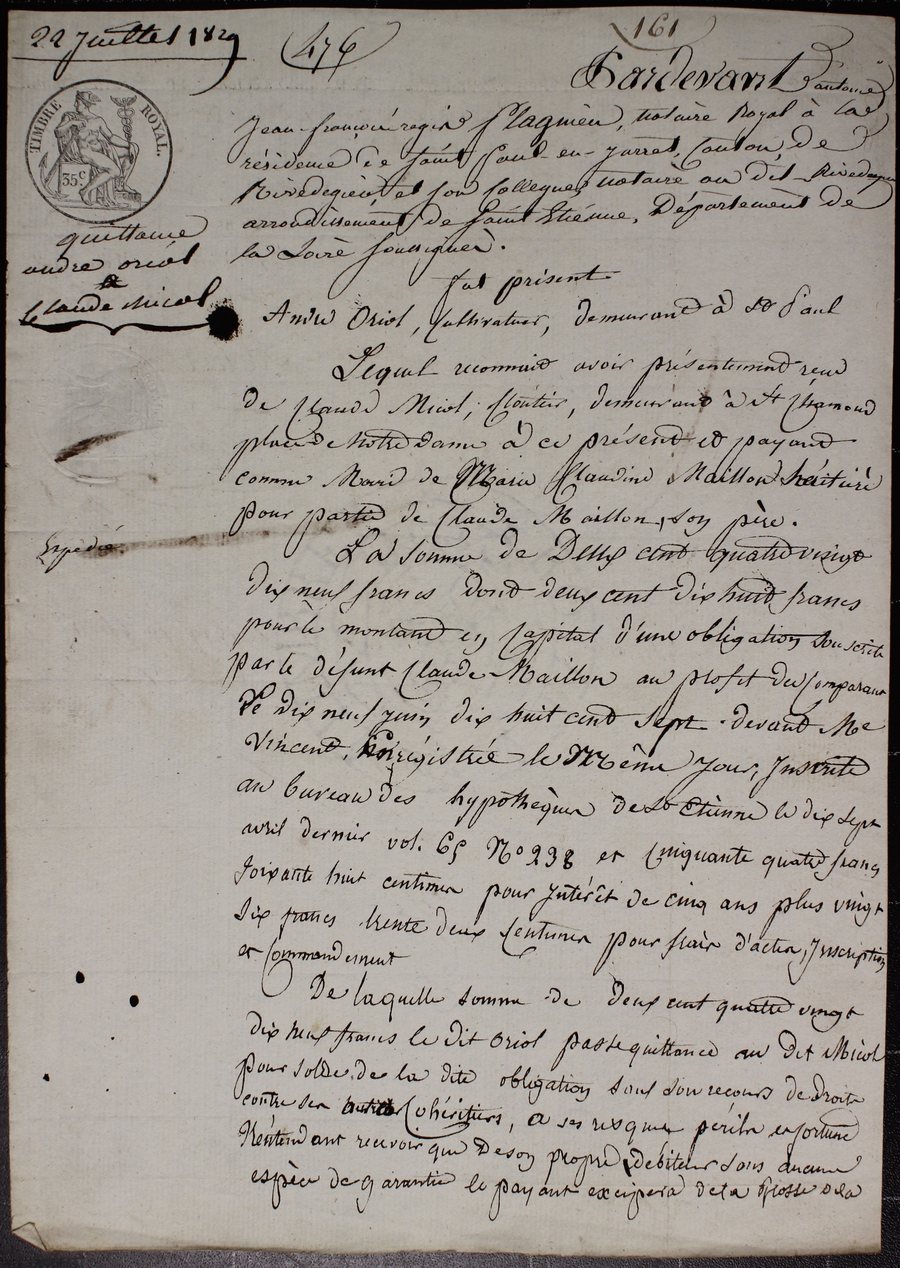 22 Juillet 1829
476
161
TIMBRE ROYAL.
35 c
quittance
andre oriol
a
Claude Micol
Expédié
Pardevant antoine
Jean françois regis flaguieu, notaire Royal à la
résidence de Saint Paul-en-Jarret, Canton de
Rivedegier, et son Collegue notaire au dit Rivedegier
arrondissement de Saint Etienne, Département de
la Loire soussignés.
fut présent
André Oriol, Cultivateur, demeurant à St Paul
Lequel reconnait avoir présentement reçu
de Claude Micol, Cloutier, demeurant à St Chamond
place de Notre dame à ce présent et payant
comme Mari de Marie Claudine Maillon héritière
pour partie de Claude Maillon, son père.
La somme de Deux cent quatre vingt
dix neuf francs dont deux cent dix huit francs
pour le montant en Capital d'une obligation souscrite
par le défunt Claude Maillon au profit du Comparant
Le dix neuf juin dix huit cent sept devant Me
Vincent, Enrégistrée le Même jour, Inscrite
au bureau des hypothèques de St Etienne le dix sept
avril dernier vol. 65 No 238 et Cinquante quatre francs
soixante huit centimes pour Intérêt de cinq ans plus vingt
six francs trente deux Centimes pour frais d'actes, Inscription
et Commandement
De laquelle somme de deux cent quatre vingt
dix neuf francs le dit oriol passe quittance au Dit Micol
pour solde de la dite obligation sauf son recours de droite
contre ses Cohéritiers, a ses risques périls et fortune
N'entendant recevoir que De son propre débiteur sans aucune
espèce de garantie le payant excipera de la Grosse de la